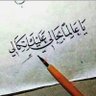 يَا عَالِمًا بِحَالِي عَلَيْكَ اتِّكَالِي